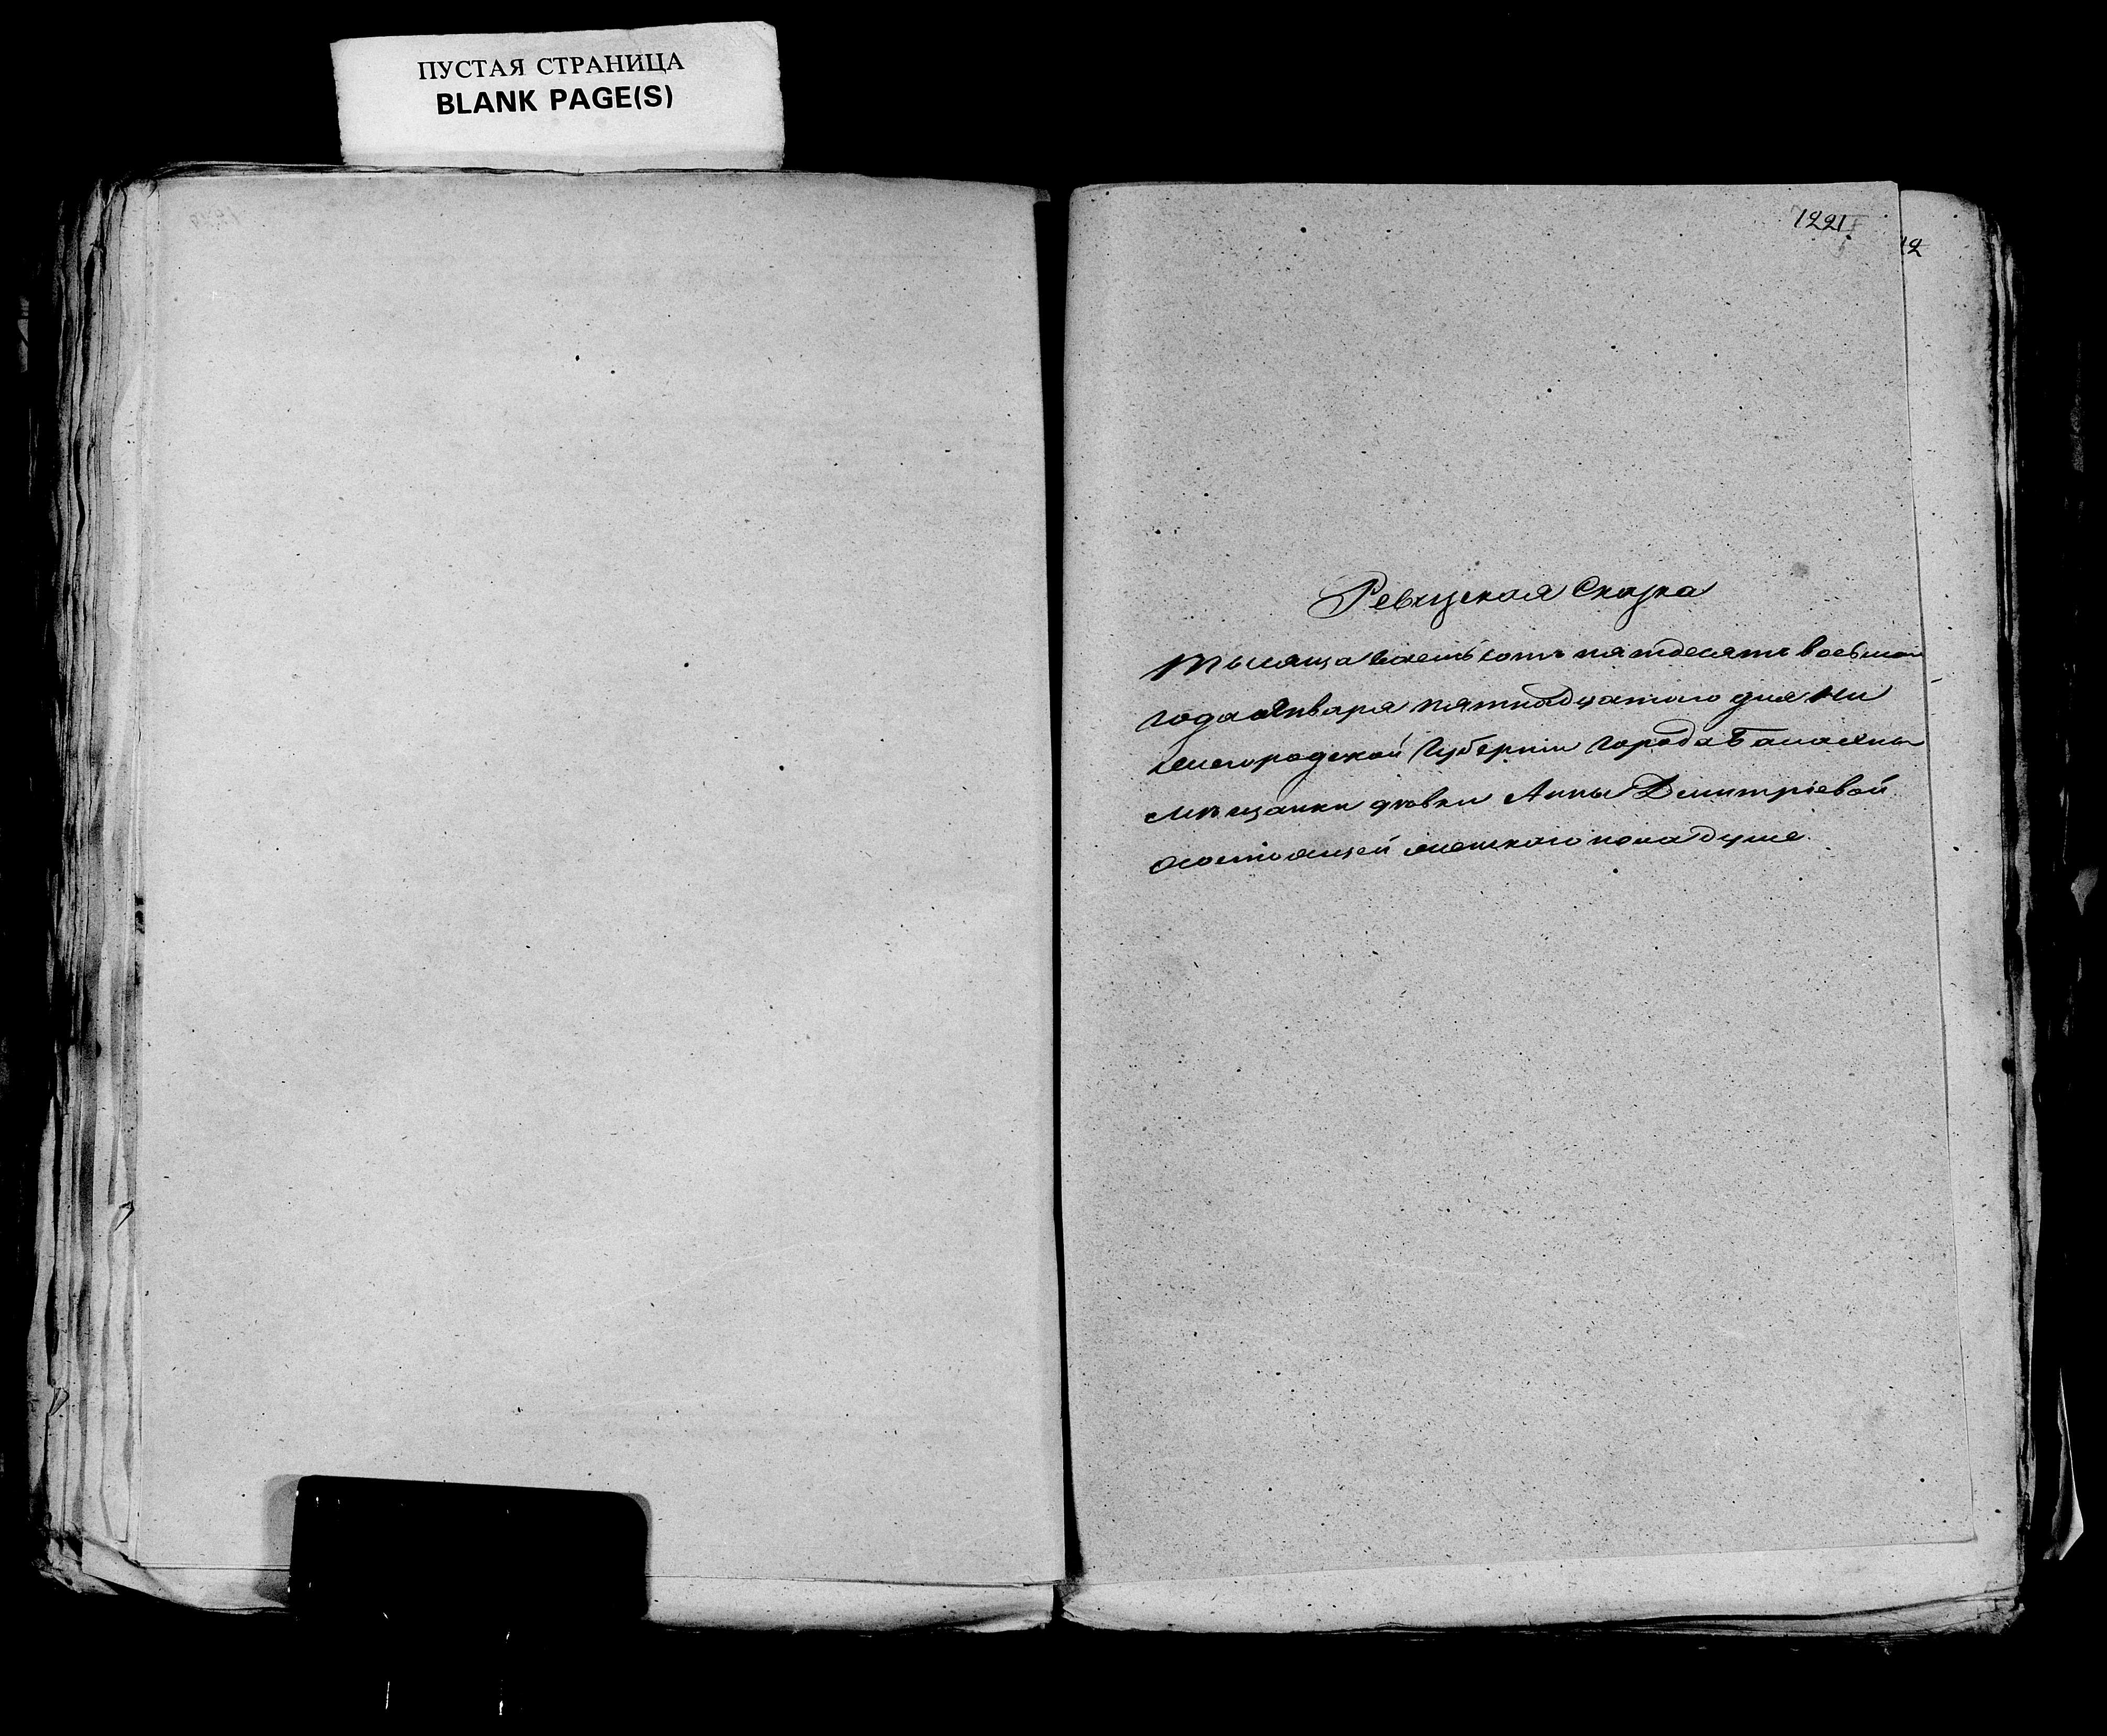 ПУСТАЯ СТРАНИЦА
BLANK PAGE(S)
1221
12
Ревизская Сказка
тысяща восемь сотъ пятдесятъ восьмаго
года Января пятнадцатого дня Ни
жегородской Губерніи города Балахны
мѣщанки дѣвки Анны Дмитріевой
состоящей женскаго пола душе